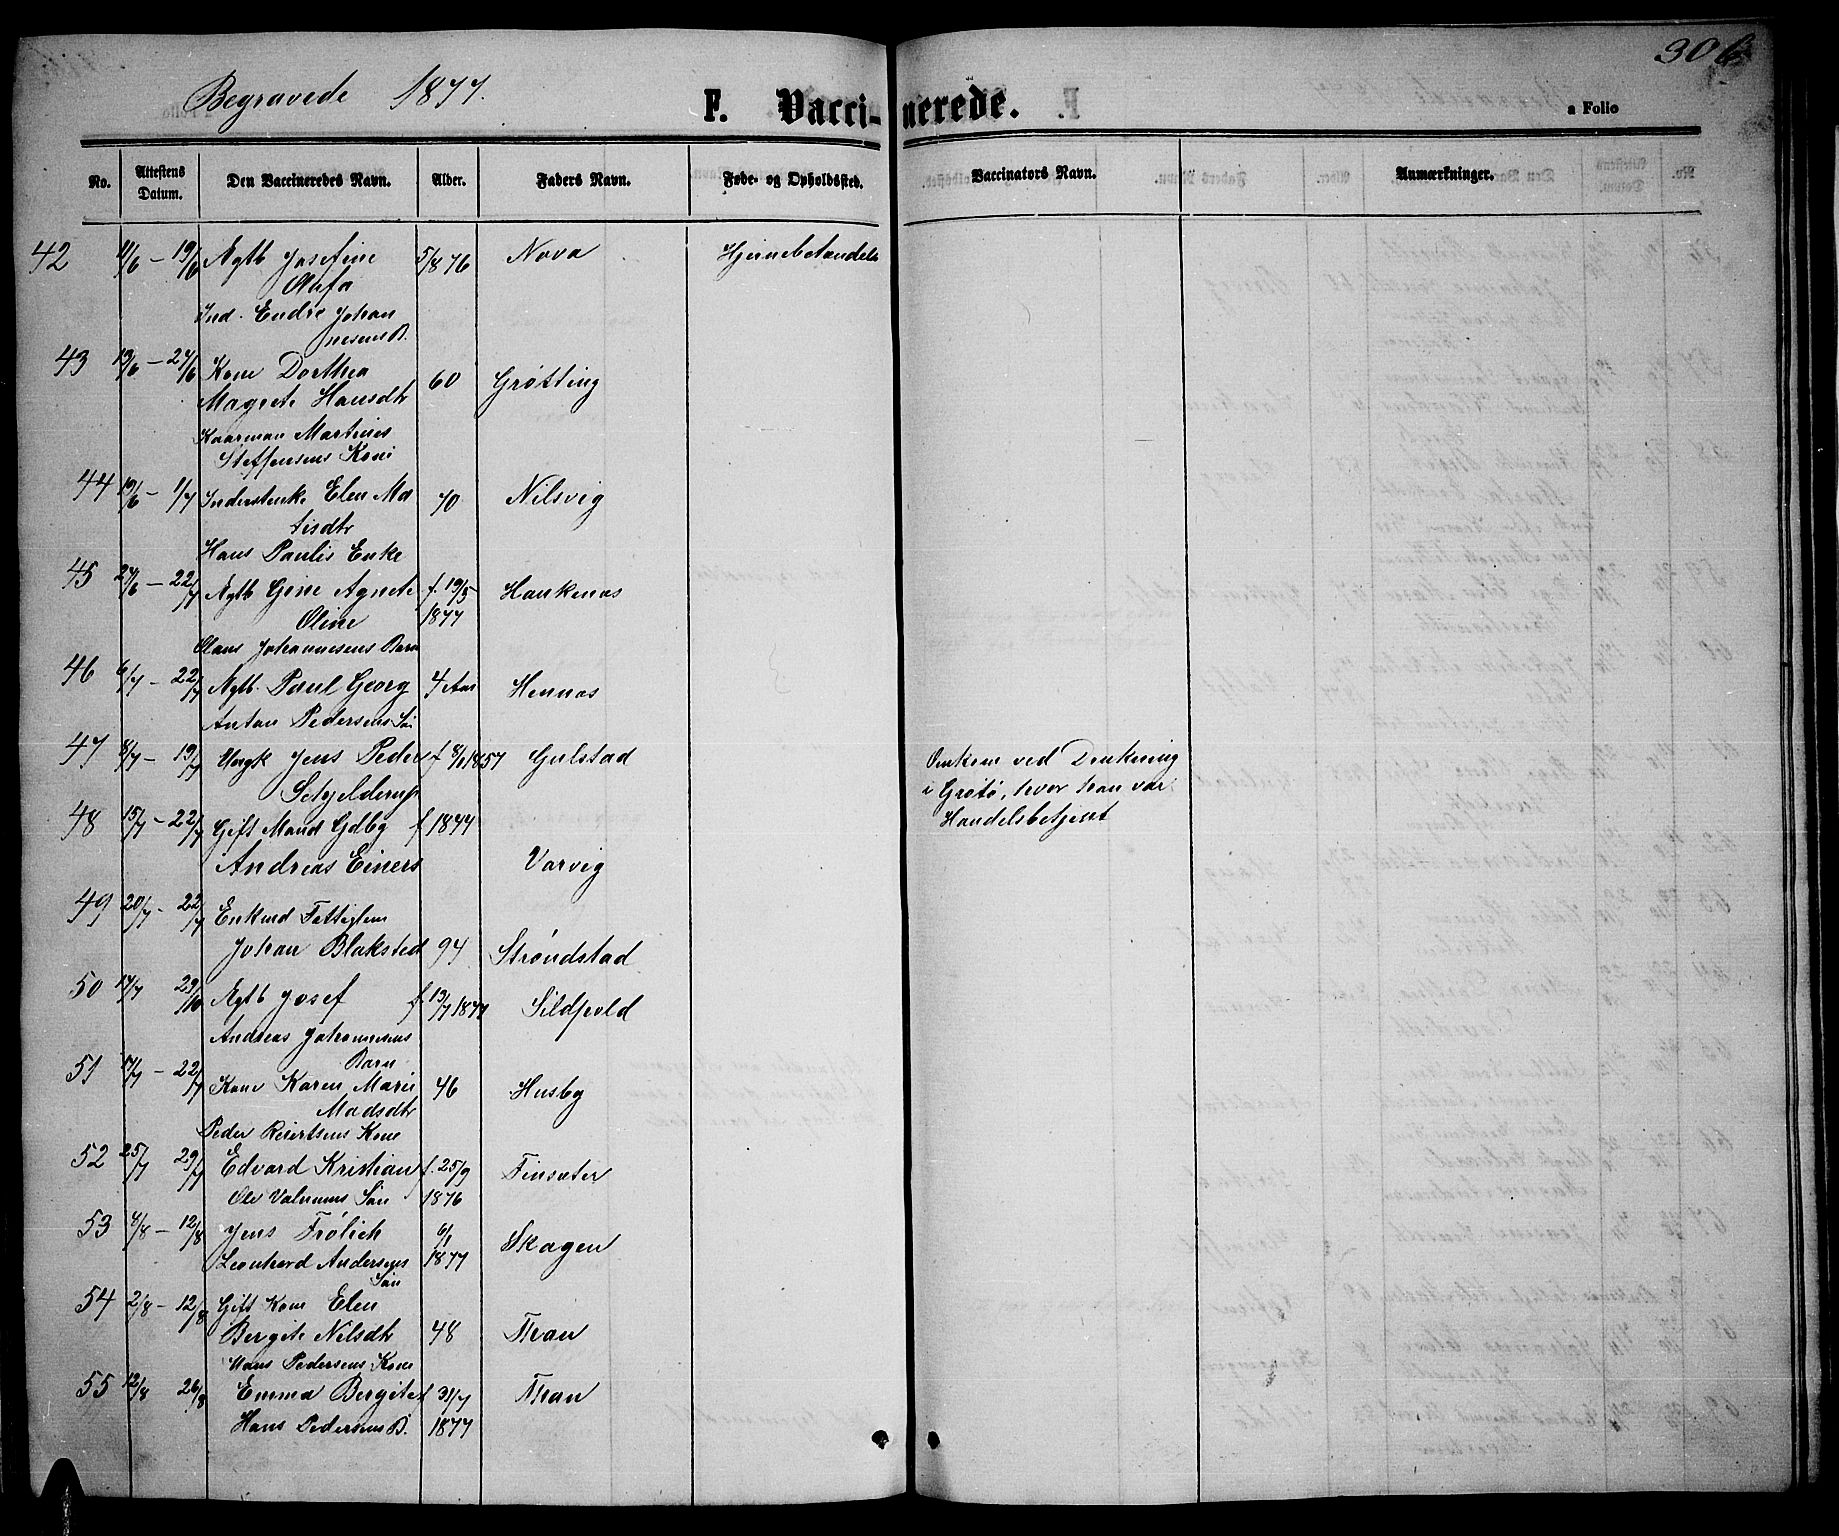 Begravede 1877.
F. Vaccinerede.
306
a Folio
No.
Attestens Datum.
Den Vaccineredes Navn.
Alder.
Faders Navn.
Føde- og Opholdssted.
Vaccinators Navn.
Anmærkninger.
42 11/6 – 19/6 Ægtb Josefine 5/8 76 Nova Hjernebetændelse
Olufa
Ind. Endre Johan
nesens B.
43 13/6 – 24/6 Kone Dorthea 60 Grøtting
Magrete Hansdtr
Kaarman Martines
Steffensens Kone
44 19/6 – 1/7 Inderstenke Elen Ma 70 Nilsvig
tisdtr
Hans Paulis Enke
45 24/6 – 22/7 Ægtb Gine Agnete f. 19/5 Haukenæs
Oline 1877
Olaus Johannesens Barn
46 6/7 – 22/7 Ægtb. Paul Georg 4 Aar Hennæs
Antan Pedersens Søn
47 8/7 – 19/7 Ungk Jens Peder f 8/1 1857 Gulstad Omkom ved Drukning
Schjelderup i Grøtø, hvor han var
Handelsbetjent
48 15/7 – 22/7 Gift Mand Gdbg f 1844
Andreas Einers Varvig
49 20/7 – 22/7 Enkmd Fattiglem
Johan Blaksted 94 Strøndstad
50 14/7 29/10 Ægtb Josef f. 13/7 1877 Sildpold
Andreas Johannesens
Barn
51 17/7 – 22/7 Kone Karen Marie 46 Husby
Madsdtr
Peder Reiertsens Kone
52 25/7 29/7 Edvard Kristian f. 25/9 Finsæter
Ole Valnums Søn 1876
53 4/8 – 12/8 Jens Frølich 6/1 Skagen
Leonhard Andersens 1877
Søn
54 2/8 – 12/8 Gift Kone Elen
Bergite Nilsdtr 48 Thran
Hans Pedersens Kone
55 12/8 26/8 Emma Bergite f. 31/7 Thran
Hans Pedersens B. 1877